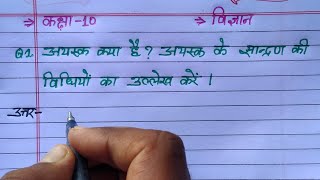 ⇒ कक्षा-10 ⇒ विज्ञान
Q1. अयस्क क्या है? अयस्क के सान्द्रण की
विधियों का उल्लेख करें।
उत्तर-